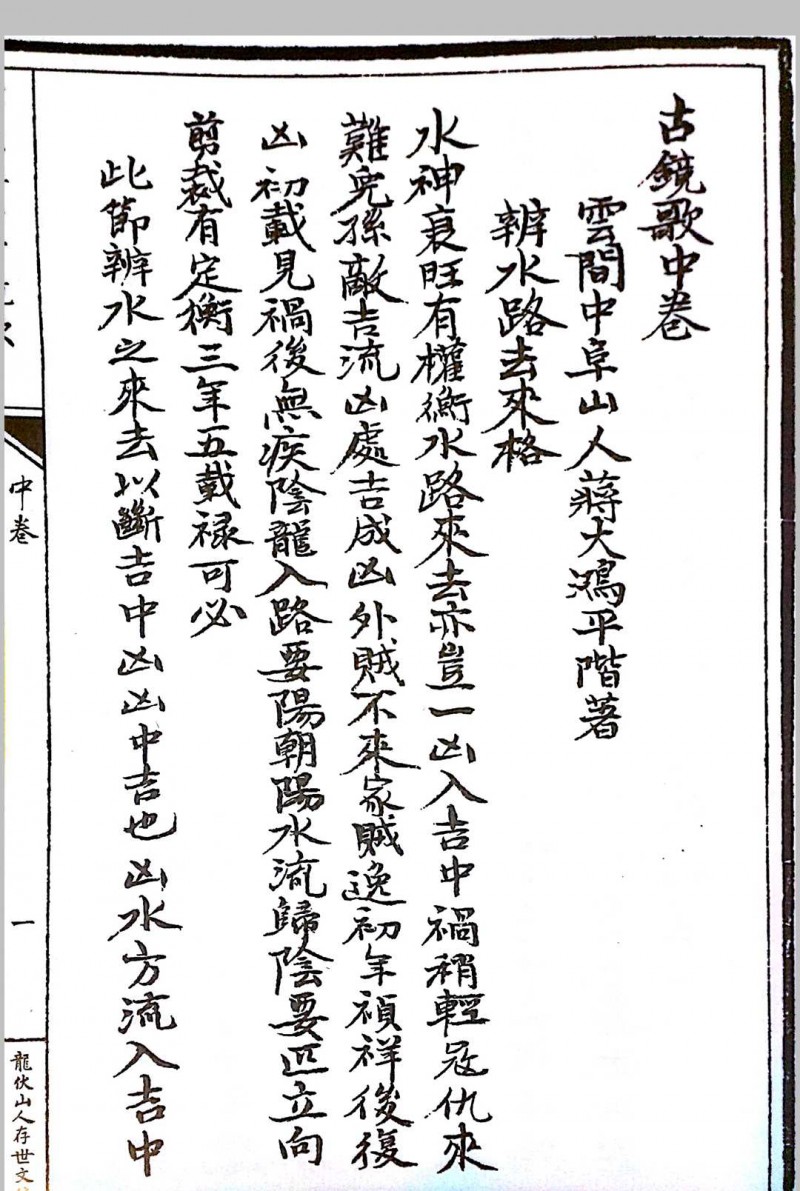 古鏡歌中卷
雲間中阜山人蔣大鴻平階著
辨水路去來格
水神衰旺有權衡水路來去亦豈一凶入吉中禍稍輕冦仇來
難免孫敵吉流凶處吉成凶外賊不來家賊逸初年禎祥後復
凶初載見禍後無疾陰龍入路要陽朝陽水流歸陰要匹立向
剪裁有定衡三年五載禄可必
此節辨水之來去以斷吉中凶凶中吉也凶水方流入吉中
中卷
一
龍伏山人存世文